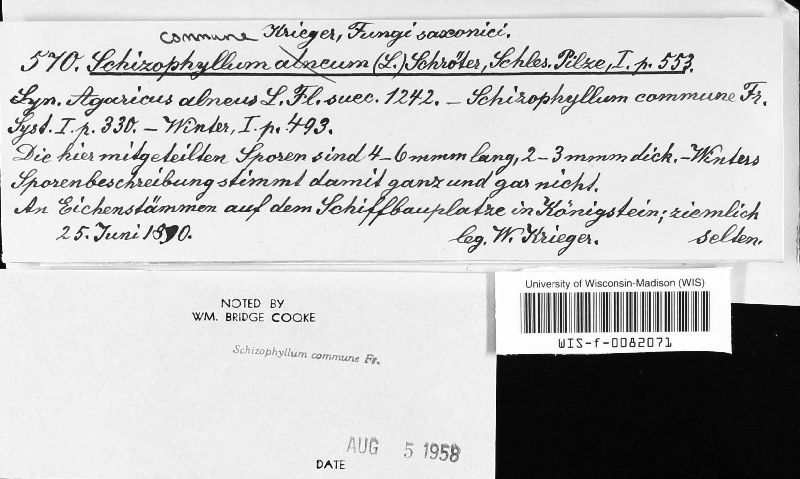 commune Krieger, Fungi saxonici.
570. Schizophyllum alneum (L.) Schröter, Schles. Pilze, I. p. 553.
Syn. Agaricus alneus L. Fl. suec. 1242. – Schizophyllum commune Fr.
Syst. I. p. 330. – Winter, I. p. 493.
Die hier mitgeteilten Sporen sind 4–6 mmm lang, 2–3 mmm dick. – Winters
Sporenbeschreibung stimmt damit ganz und gar nicht.
An Eichenstämmen auf dem Schiffbauplatze in Königstein; ziemlich
25. Juni 1890. leg. W. Krieger. selten.
University of Wisconsin-Madison (WIS)
WIS-f-0082071
NOTED BY
WM. BRIDGE COOKE
Schizophyllum commune Fr.
AUG 5 1958
DATE